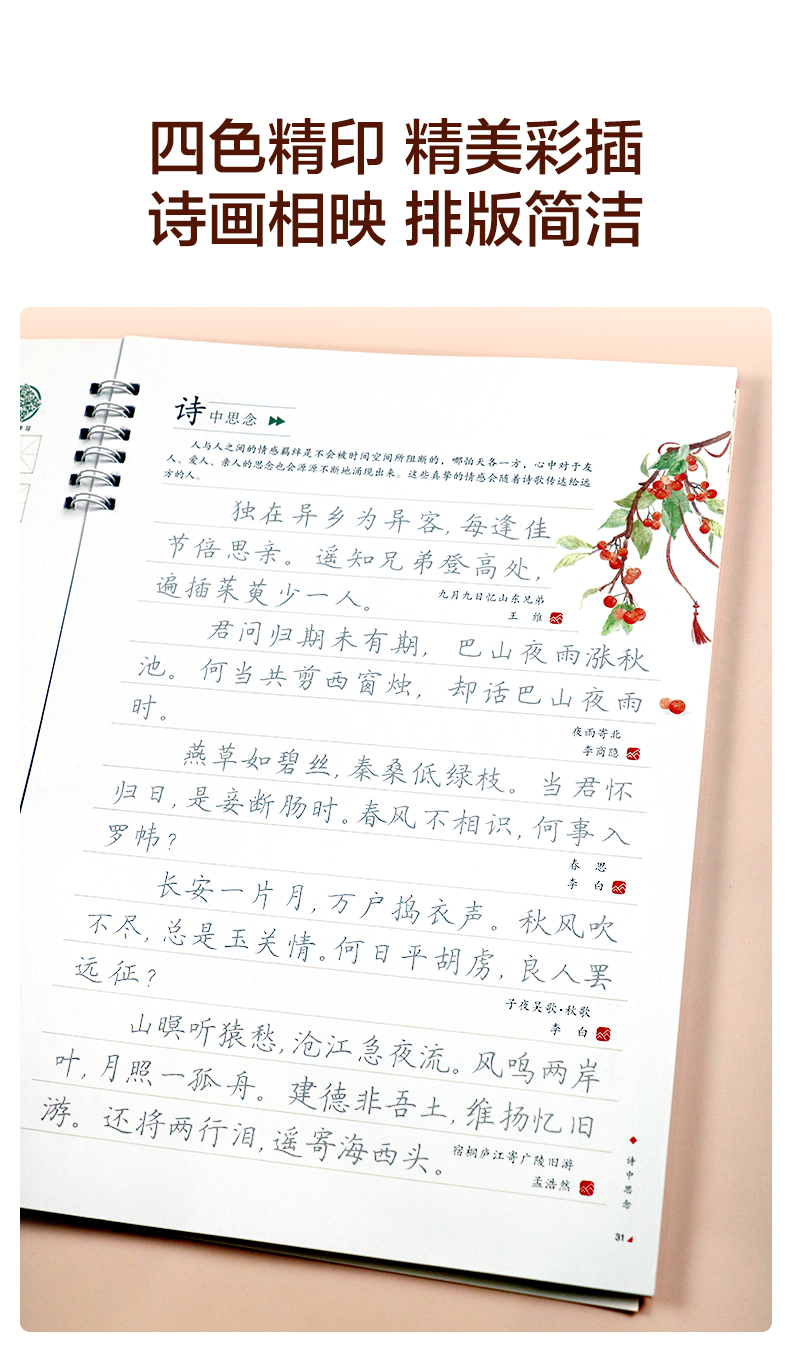 四色精印 精美彩插
诗画相映 排版简洁
诗中思念
人与人之间的情感羁绊是不会被时间空间所阻断的，哪怕天各一方，心中对于友
人、爱人、亲人的思念也会源源不断地涌现出来。这些真挚的情感会随着诗歌传达给远
方的人。
独在异乡为异客，每逢佳
节倍思亲。遥知兄弟登高处，
遍插茱萸少一人。
九月九日忆山东兄弟
王 维
君问归期未有期，巴山夜雨涨秋
池。何当共剪西窗烛，却话巴山夜雨
时。
夜雨寄北
李商隐
燕草如碧丝，秦桑低绿枝。当君怀
归日，是妾断肠时。春风不相识，何事入
罗帏？
春 思
李 白
长安一片月，万户捣衣声。秋风吹
不尽，总是玉关情。何日平胡虏，良人罢
远征？
子夜吴歌·秋歌
李 白
山暝听猿愁，沧江急夜流。风鸣两岸
叶，月照一孤舟。建德非吾土，维扬忆旧
游。还将两行泪，遥寄海西头。
宿桐庐江寄广陵旧游
孟浩然
诗中思念
31